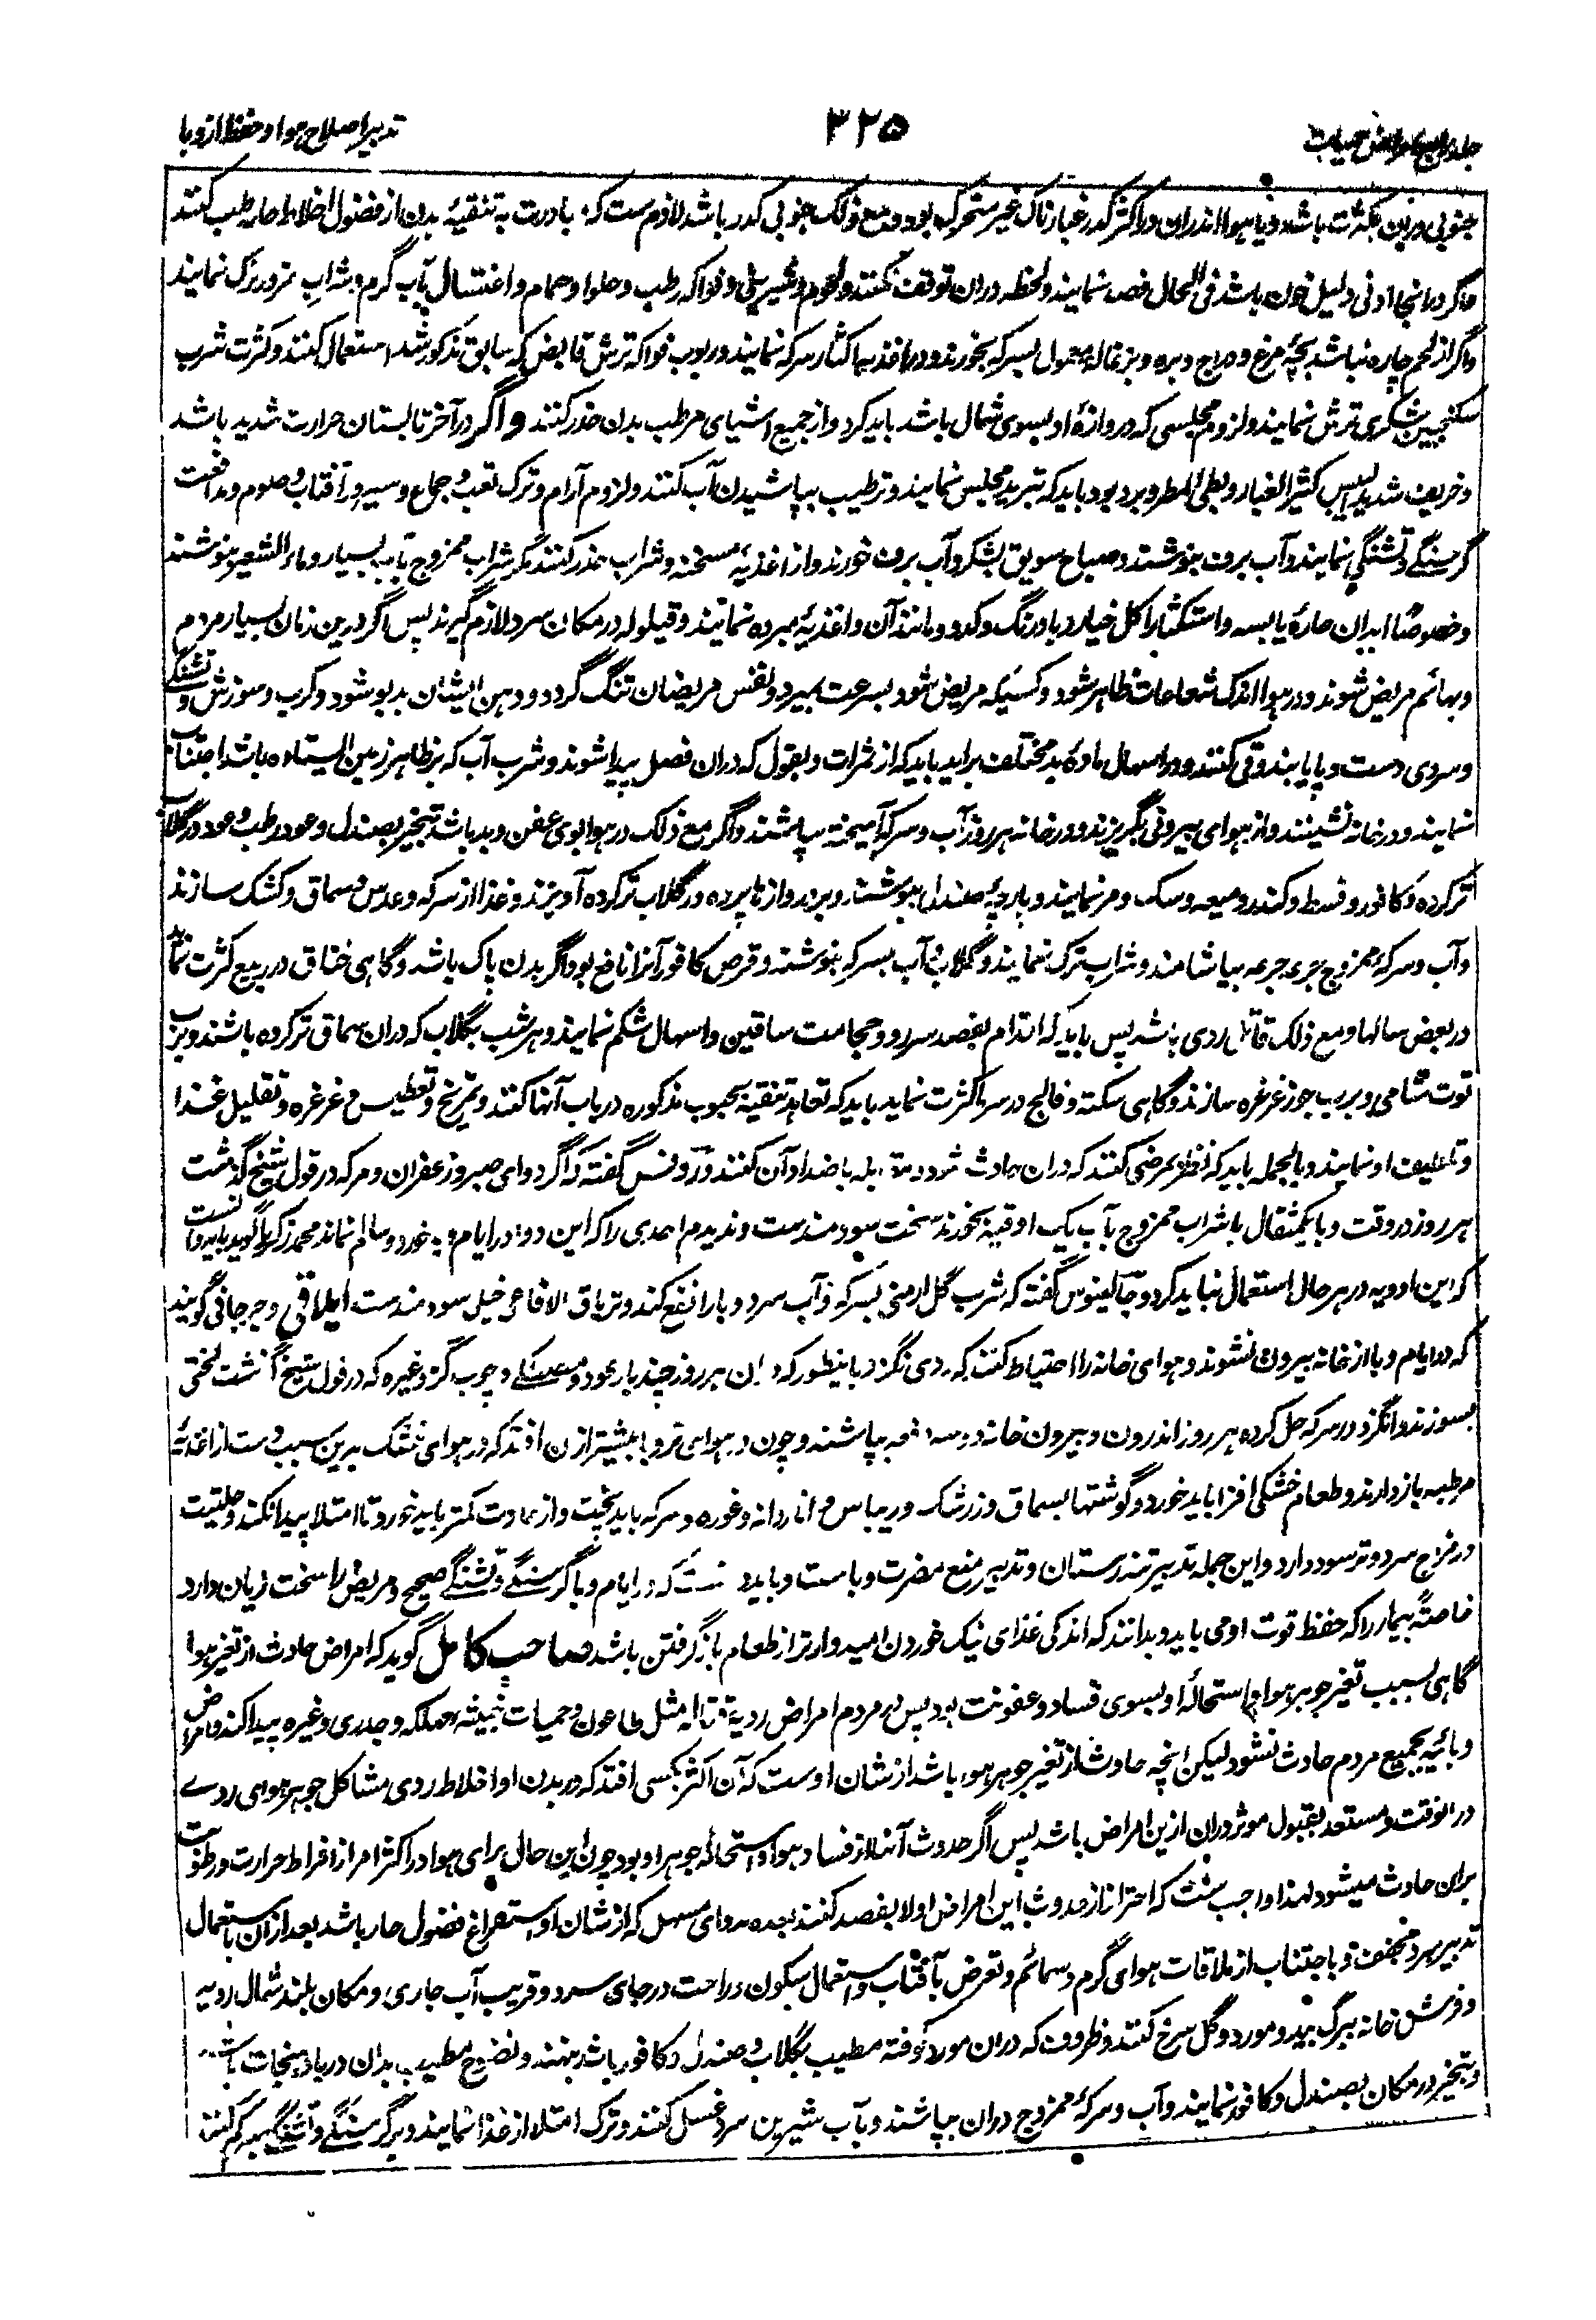 تدبیر اصلاح هوا و حفظ از وبا
۳۲۵
جلد
جنوبی درین بکثرت باشد و یا هوا اندران در اکثر کدر غبارناک غیر متحرک بود و مع ذلک جنوبی کدر باشد لازم ست که مبادرت به تنقیهٔ بدن از فضول اخلاط حاره رطب کنند
و اگر در انجا ادنی دلیل خون باشد فی الحال فصد نمایند و لحظه دران توقف نکنند و لحوم و شیرینی و فواکه رطب و حلوا و حمام و اغتسال بآب گرم و شراب ترک نمایند
و اگر از لحم چاره نباشد بچهٔ مرغ و دراج و بره و بزغاله معمول بسرکه بخورند و در اغذیه اکثار سرکه نمایند و ربوب فواکه ترش قابض که سابق مذکور شد استعمال کنند و کثرت شرب
سکنجبین شکری ترش نمایند و لزوم مجلسی که دروازهٔ او بسوی شمال باشد باید کرد و از جمیع اشیای مرطب بدن حذر کنند و اگر در آخر تابستان حرارت شدید باشد
و خریف شدید الیبس کثیر الغبار و بطی المطر و برد بود باید که تبرید مجلس نمایند و ترطیب بپاشیدن آب کنند و لزوم آرام و ترک تعب و جماع و سیر در آفتاب و صوم و مدافعت
گرسنگی و تشنگی نمایند و آب برف بنوشند و صباح سویق بشکر و آب برف خورند و از اغذیهٔ مسخنه و شراب حذر کنند مگر شراب ممزوج بآب بسیار و ماء الشعیر بنوشند
و خصوصًا ابدان حارهٔ یابسه و استکثار اکل خیار و بادرنگ و کدو و مانند آن و اغذیهٔ مبرده نمایند و قیلوله در مکان سرد لازم گیرند پس اگر درین زمان بسیار مردم
و بهائم مریض شوند و در هوا اندک شعاعات ظاهر شود و کسیکه مریض شود بسرعت بمیرد و نفس مریضان تنگ گردد و دهن ایشان بدبو شود و کرب و سوزش و تشنگی
و سردی دست و پا یابند و قی کنند و در اسهال مادهٔ بد مختلف براید باید که از ثمرات و بقول که دران فصل پیدا شوند و شرب آب که بر ظاهر زمین ایستاده باشد اجتناب
نمایند و در خانه نشینند و از هوای بیرونی بگریزند و در خانه هر روز آب و سرکه آمیخته بپاشند و اگر مع ذلک در هوا بوی عفن و بد باشد تبخیر بصندل و عود رطب و عود در گلاب
تر کرده و کافور و قسط و کندر و میعه و سک و مر نمایند و پارچه صندلی بپوشند و بر دروازها پرده در گلاب تر کرده آویزند و غذا از سرکه و عدس و سماق و کشک سازند
و آب و سرکهٔ ممزوج جرعه جرعه بیاشامند و شراب ترک نمایند و گلاب و آب بسرکه بنوشند و قرص کافور آنرا نافع بود اگر بدن پاک باشد و گاهی خناق در ربیع کثرت نماید
در بعض سالها و مع ذلک قاتل ردی باشد پس باید که اقدام بفصد سررو و حجامت ساقین و اسهال شکم نمایند و هر شب بگلاب که دران سماق تر کرده باشند و برب
توت شامی و برب جوز غرغره سازند و گاهی سکته و فالج در سرما کثرت نماید باید که تعاهد تنقیه بحبوب مذکوره در باب آنها کنند و تمریخ و تعطیس و غرغره و تقلیل غذا
و تلطیف او نمایند و بالجمله باید که نظر بمرضی کنند که دران حادث شود و مقابله باضداد آن کنند و روفس گفته که اگر دوای صبر و زعفران و مر که در قول شیخ گذشت
هر روز در وقت وبا یکمثقال با شراب ممزوج بآب یک اوقیه بخورند سخت سودمندست و ندیدم احدی را که این دوا در ایام وبا خورد و سالم نماند محمد زکریا گوید باید دانست
که این ادویه در هر حال استعمال نباید کرد و جالینوس گفته که شرب گل ارمنی بسرکه و آب سرد وبا را نفع کند و تریاق الافاعی خیلی سودمندست ایلاقی و جرجانی گویند
که در ایام وبا از خانه بیرون نشوند و هوای خانه را احتیاط کنند که ردی نگردد باینطور که دران هر روز چند بار عود و مصطکی و چوب گز و غیره که در قول شیخ گذشت لختی
بسوزند و انگزد در سرکه حل کرده هر روز اندرون و بیرون خانه دو سه دفعه بپاشند و چون در هوای تر وبا بیشتر ازان افتد که در هوای خشک بدین سبب دست از اغذیهٔ
مرطبه بازدارند و طعام خشکی افزا باید خورد و گوشتها بسماق و زرشک و ریباس و اناردانه و غوره و سرکه باید پخت و از عادت کمتر باید خورد تا امتلا پیدا نکند و حلتیت
در مزاج سرد و تر سود دارد و این جمله تدبیر تندرستان و تدبیر منع مضرت وباست و باید دانست که در ایام وبا گرسنگی و تشنگی صحیح و مریض را سخت زیان دارد
خاصةً بیمار را که حفظ قوت او می باید و بدانند که اندکی غذای نیک خوردن امیدوارتر از طعام بازگرفتن باشد صاحب کامل گوید که امراض حادث از تغیر هوا
گاهی بسبب تغیر جوهر هوا و استحالهٔ او بسوی فساد و عفونت بود پس در مردم امراض ردیهٔ قتاله مثل طاعون و حمیات خبیثه مهلکه و جدری و غیره پیدا کند و امراض
وبائیه بجمیع مردم حادث نشود لیکن انچه حادث از تغیر جوهر هوا باشد از شان اوست که آن اکثر بکسی افتد که در بدن او اخلاط ردی مشاکل جوهر هوای ردی
درانوقت و مستعد بقبول موثر دران ازین امراض باشد پس اگر حدوث آنها از فساد هوا و استحالهٔ جوهر او بود چون این حال برای هوا در اکثر امر از افراط حرارت و رطوبت
بران حادث میشود لهذا واجب ست که احتراز از حدوث این امراض اولا بفصد کنند بعده بدوای مسهل که از شان او استفراغ فضول حار باشد بعد ازان باستعمال
تدبیر مبرد مجفف و باجتناب از ملاقات هوای گرم و سمائم و تعرض بآفتاب و استعمال سکون و راحت در جای سرد و قریب آب جاری و مکان بلند شمال رویه
و فرش خانه ببرگ بید و مورد و گل سرخ کنند و ظروف که دران مورد کوفته مطیب بگلاب و صندل و کافور باشد بنهند و نضوح مطیب بدان در بادهنجات باشد
و تبخیر در مکان بصندل و کافور نمایند و آب و سرکهٔ ممزوج دران بپاشند و بآب شیرین سرد غسل کنند و ترک امتلا از غذا نمایند و بر گرسنگی و تشنگی